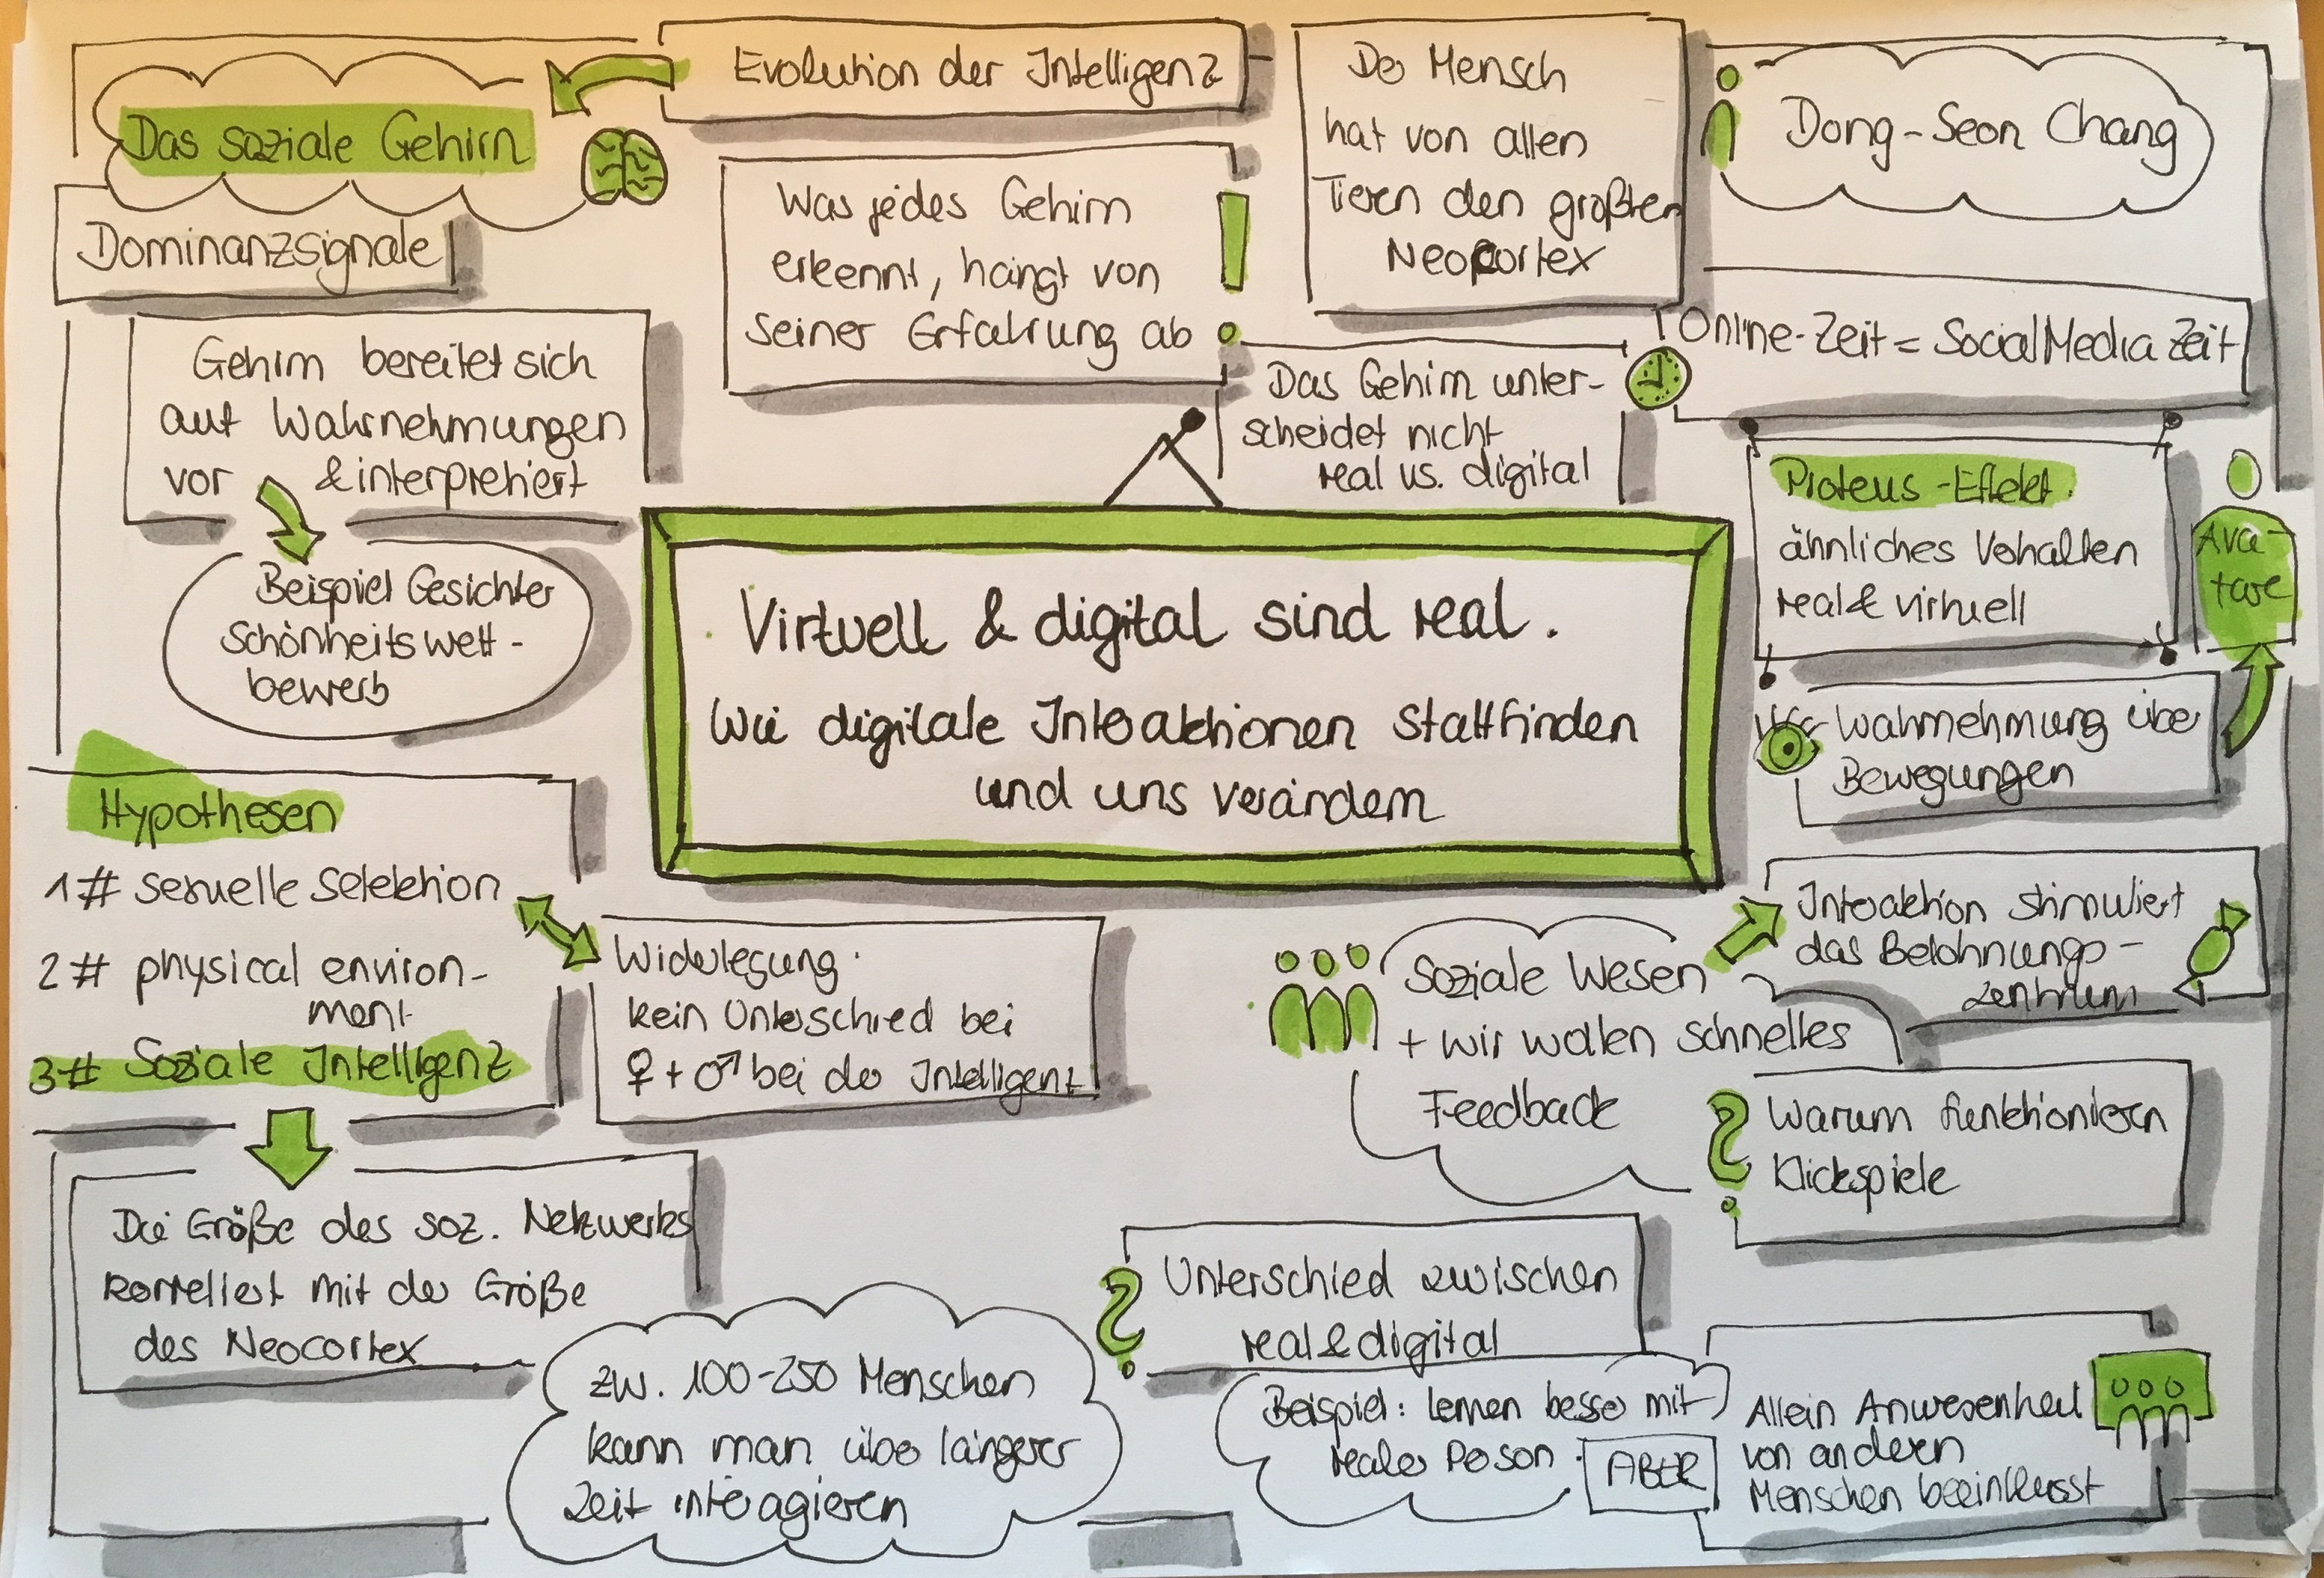 Evolution der Intelligenz
Das soziale Gehirn
Dominanzsignale
Gehirn bereitet sich
auf Wahrnehmungen
vor & interpretiert
Beispiel Gesichter
Schönheitswett-
bewerb
Was jedes Gehirn
erkennt, hängt von
seiner Erfahrung ab
Der Mensch
hat von allen
Tieren den größten
Neocortex
Dong-Seon Chang
Online-Zeit = Social Media Zeit
Das Gehirn unter-
scheidet nicht
real vs. digital
Proteus-Effekt.
ähnliches Verhalten
real & virtuell
Ava-
tare
Wahrnehmung über
Bewegungen
Virtuell & digital sind real.
Wie digitale Interaktionen stattfinden
und uns verändern
Hypothesen
1# sexuelle Selektion
2# physical environ-
ment
3# Soziale Intelligenz
Widerlegung:
kein Unterschied bei
♀ + ♂ bei der Intelligenz
Die Größe des soz. Netzwerks
korreliert mit der Größe
des Neocortex
zw. 100-250 Menschen
kann man über längerer
Zeit interagieren
Soziale Wesen
+ wir wollen schnelles
Feedback
Interaktion stimuliert
das Belohnungs-
zentrum
Warum funktionieren
Klickspiele
?
Unterschied zwischen
real & digital
?
Beispiel: lernen besser mit
realer Person.
ABER
Allein Anwesenheit
von anderen
Menschen beeinflusst